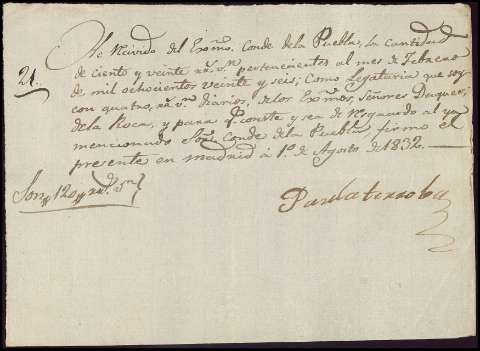 He Recivido del Exmo. Conde de la Puebla, la cantidad
21. de ciento y veinte rs. vn. pertenecientes al mes de Febrero
de mil ochocientos veinte y seis, como Legataria que soy
con quatro, rs. vn. diarios, de los Exmos. Señores Duques,
de la Roca, y para qe. conste y sea de resguardo al ya
mencionado Sor. Conde de la Puebla, firmo el
presente en Madrid á 1º. de Agosto de 1832.
Son,, 120,, rs. vn.